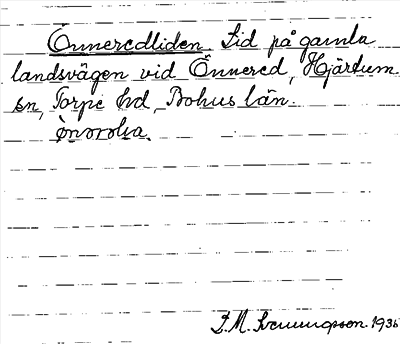 Önneredliden Lid på gamla
landsvägen vid Önnered, Hjärtum
sn, Torpe hd, Bohus län.
1936